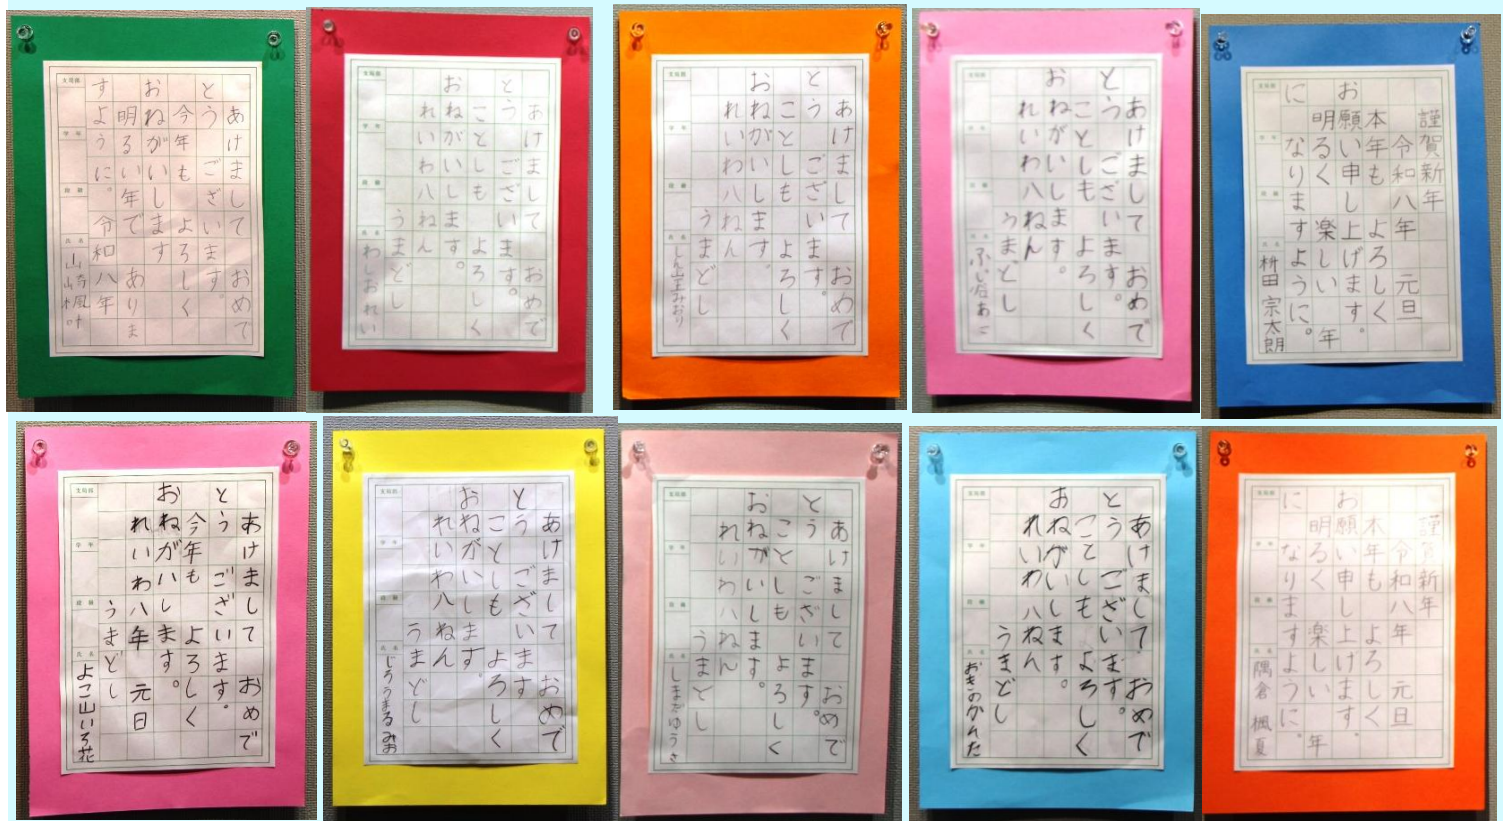 あけまして おめで
とう ございます。
今年も よろしく
おねがいします
明るい年で ありま
すように。 令和八年
支局部 学年 段級 氏名
山崎楓叶
あけまして おめで
とう ございます。
ことしも よろしく
おねがいします。
れいわ八ねん
うまどし
支局部 学年 段級 氏名
わしおれい
あけまして おめで
とう ございます。
ことしも よろしく
おねがいします。
れいわ八ねん
うまどし
支局部 学年 段級 氏名
みおり
あけまして おめで
とう ございます。
ことしも よろしく
おねがいします。
れいわ八ねん
うまどし
支局部 学年 段級 氏名
あこ
謹賀新年
令和八年 元旦
本年も よろしく
お願い申し上げます。
明るく 楽しい 年
になりますように。
支局部 学年 段級 氏名
枡田 宗太朗
あけまして おめで
とう ございます。
今年も よろしく
おねがいします。
れいわ八年 元日
うまどし
支局部 学年 段級 氏名
よこ山いろ花
あけまして おめで
とう ございます
ことしも よろしく
おねがいします。
れいわ八ねん
うまどし
支局部 学年 段級 氏名
じろうまるみお
あけまして おめで
とう ございます。
ことしも よろしく
おねがいします。
れいわ八ねん
うまとし
支局部 学年 段級 氏名
しまだゆうさ
あけまして おめで
とう ございます。
ことしも よろしく
おねがいします。
れいわ八ねん
うまどし
支局部 学年 段級 氏名
おぎのかんた
謹賀新年
令和八年 元旦
本年も よろしく
お願い申し上げます。
明るく 楽しい 年
になりますように。
支局部 学年 段級 氏名
隅倉 楓夏